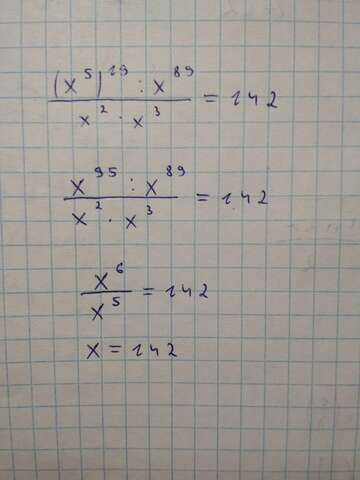 (x⁵)¹⁹ : x⁸⁹ / x² · x³ = 142
x⁹⁵ : x⁸⁹ / x² · x³ = 142
x⁶ / x⁵ = 142
x = 142